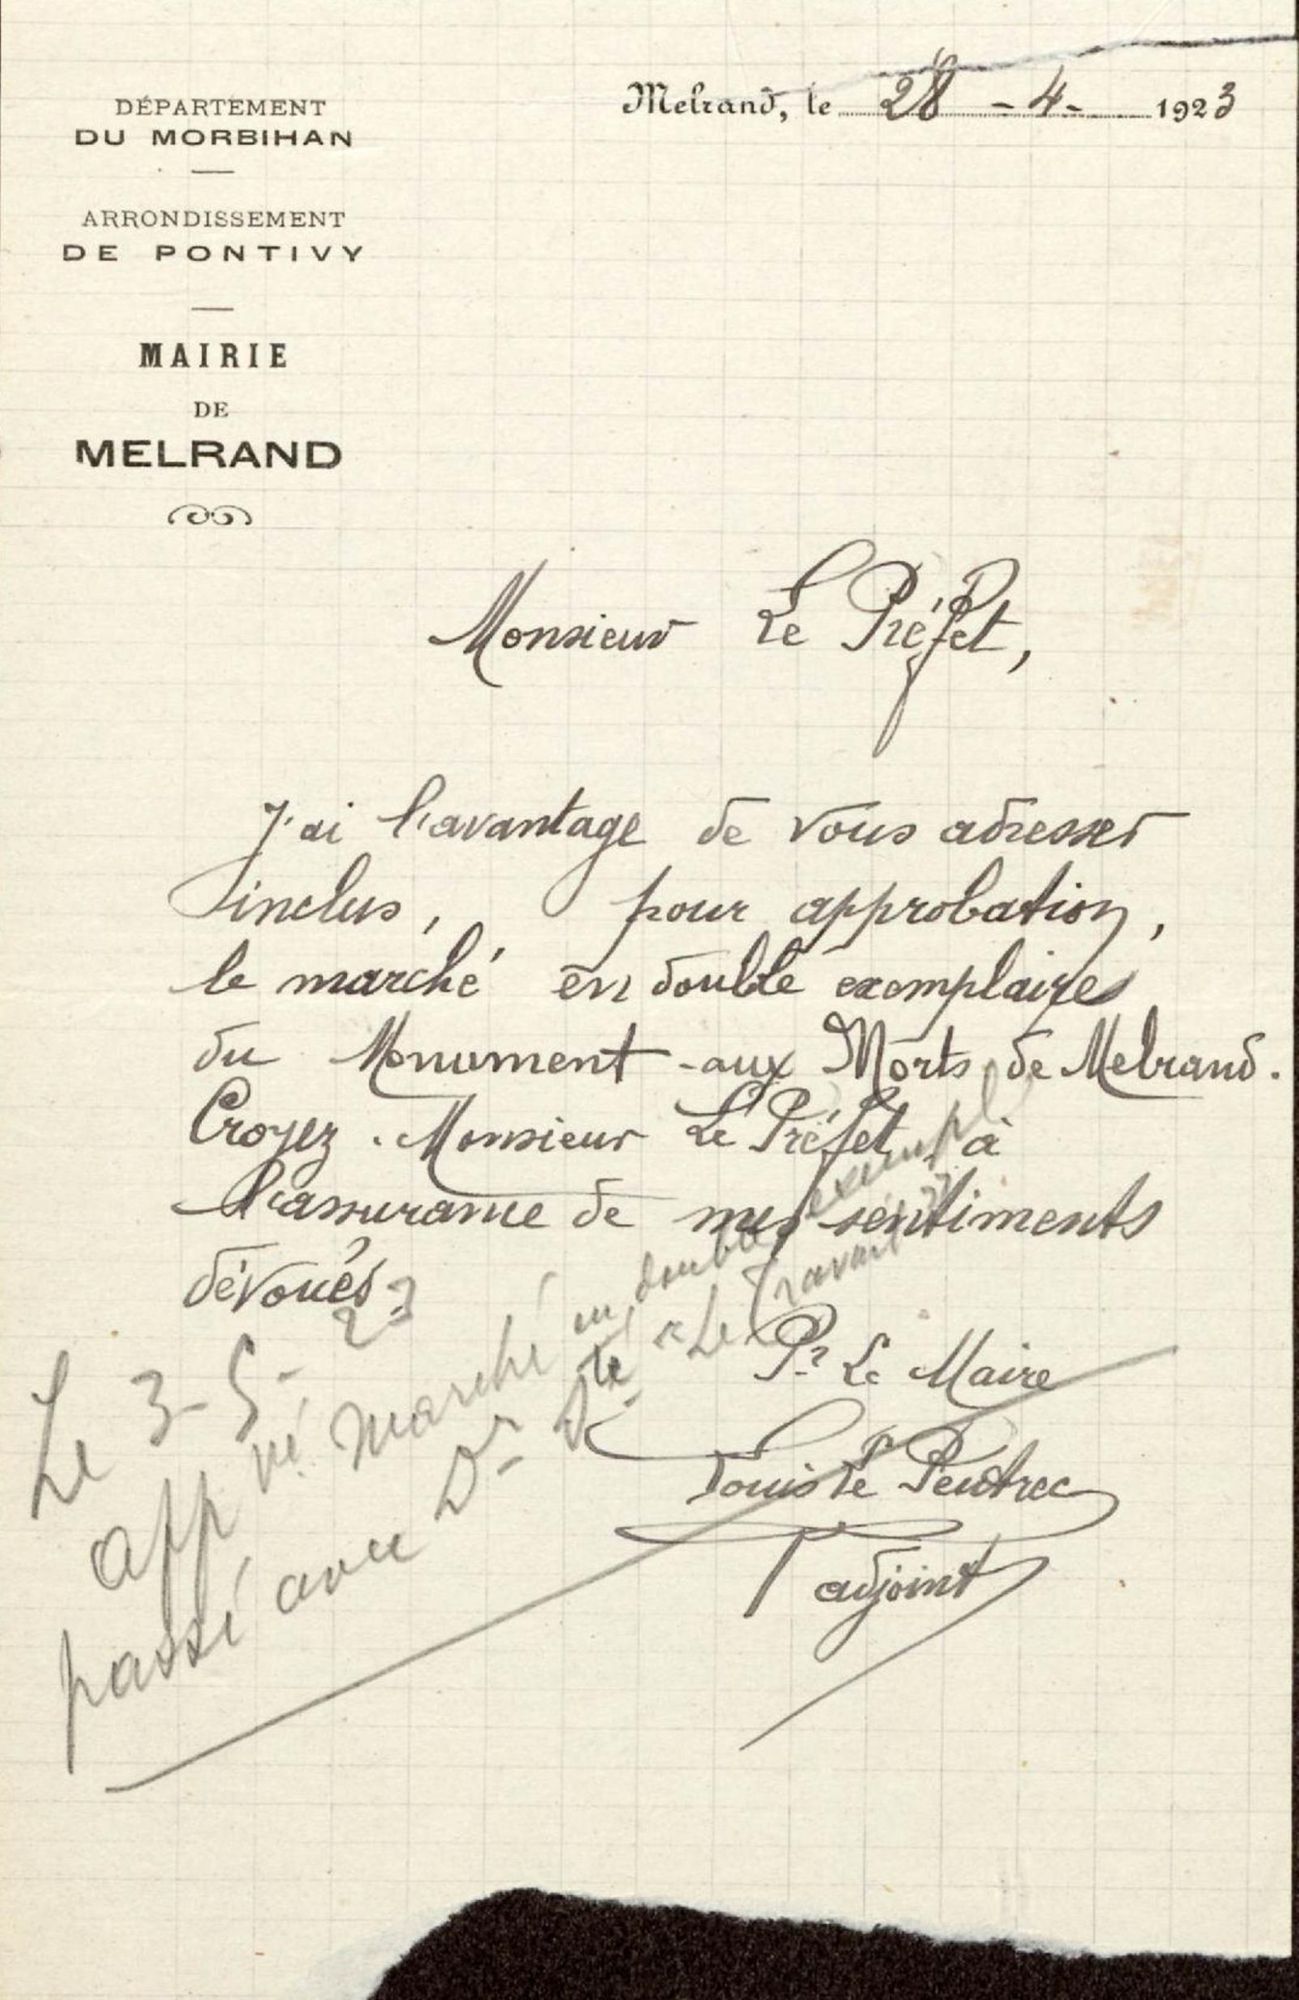 DÉPARTEMENT
DU MORBIHAN
ARRONDISSEMENT
DE PONTIVY
MAIRIE
DE
MELRAND
Melrand, le 28 - 4 - 1923
Monsieur Le Préfet,
J'ai l'avantage de vous adresser
inclus, pour approbation,
le marché en double exemplaires
du Monument aux Morts de Melrand.
Croyez. Monsieur Le Préfet, à
l'assurance de mes sentiments
dévoués.
Pr Le Maire
Louis Le Peutrec
adjoint
Le 3-5-23
appvé marché en double exempl
passé avec Dr Sté "Le Travail"